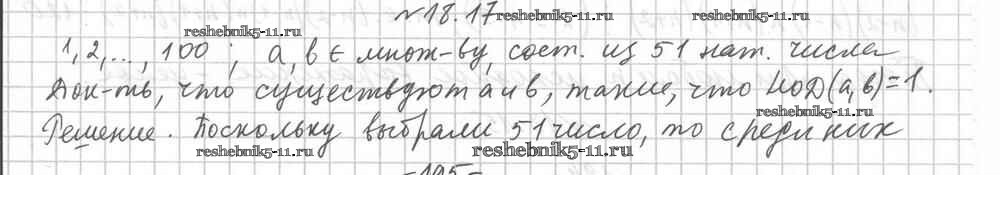 №18.17 reshebnik5-11.ru
reshebnik5-11.ru
1, 2, ..., 100 ; a, b ∈ множ-ву, сост. из 51 нат. числа
Док-ть, что существуют a и b, такие, что НОД(a, b)=1.
reshebnik5-11.ru
Решение. Поскольку выбрали 51 число, то среди них
reshebnik5-11.ru reshebnik5-11.ru
-195-